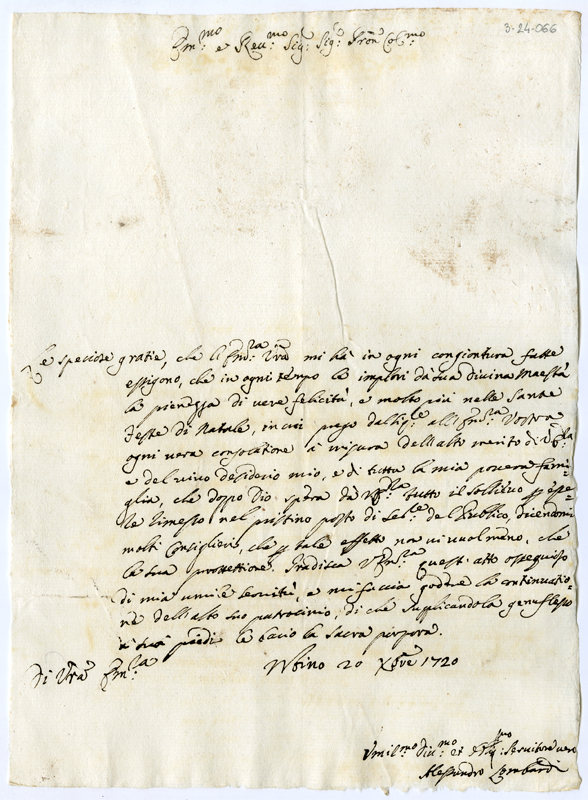 3-24-066
Em:mo e Rev:mo Sig: Sig:e Pron Col:mo
Le speciose gratie, che l'Em:za Vra mi hà in ogni congiontura fatte
essigono, che in ogni tempo le implori dà sua divina Maestà
la pienezza di vere felicità, e molto più nelle Sante
Feste di Natale, in cui prego dall' all'Em:za Vostra
ogni vera consolatione à misura dell'alto merito di V. Em:za
e del vivo desiderio mio, e di tutta la mia povera fami-
glia, che doppo Dio spera dà tutto il sollievo p
le rimesso nel pristino posto di del Publico, dicendomi
molti Consiglieri, che p tale effetto non vi vuol meno, che
la sua prottettione. Gradisca V. Em:za quest'atto ossequioso
di mia umile servitù, e mi faccia godere la continuatio-
ne dell'alto suo patrocinio, di che supplicandola genuflesso
a suoi piedi le bacio la sacra porpora.
Di Vra Em:za
Urbino 20 Xbre 1720
Umil:mo Div:mo et Servitore vero
Alessandro Lombardi